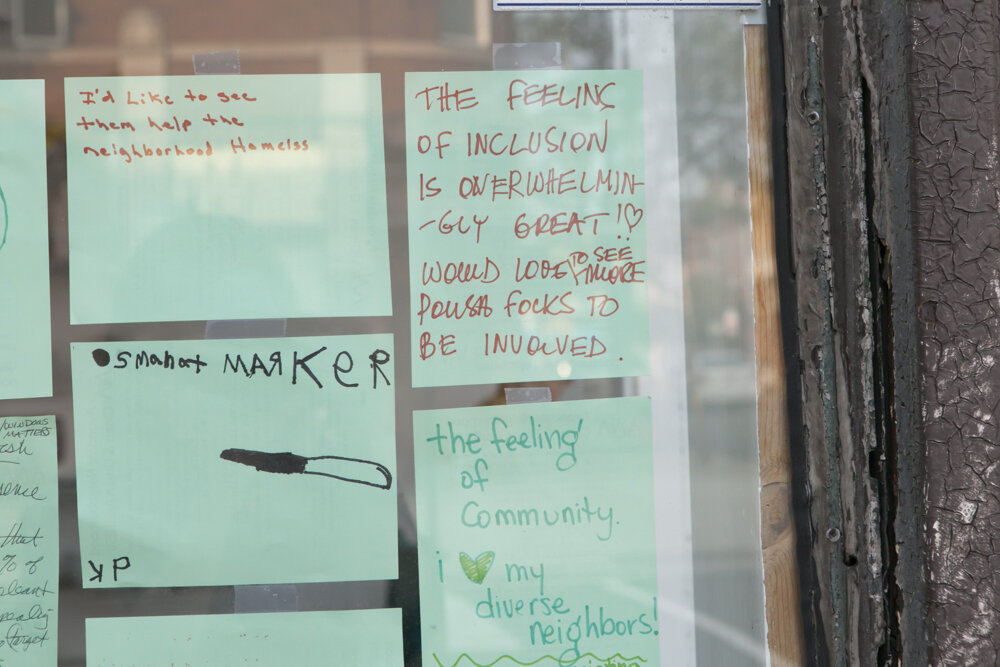 I'd Like to see
them help the
neighborhood Homelss
THE FEELING
OF INCLUSION
IS OVERWHELMIN-
-GLY GREAT!♡
WOULD LOVE TO SEE MORE
POWSA FOCKS TO
BE INVOLVED.
smahat MARKER
KP
the feeling
of
Community.
i ♥ my
diverse
neighbors!
WINDOWS
MATTERS
that
% of